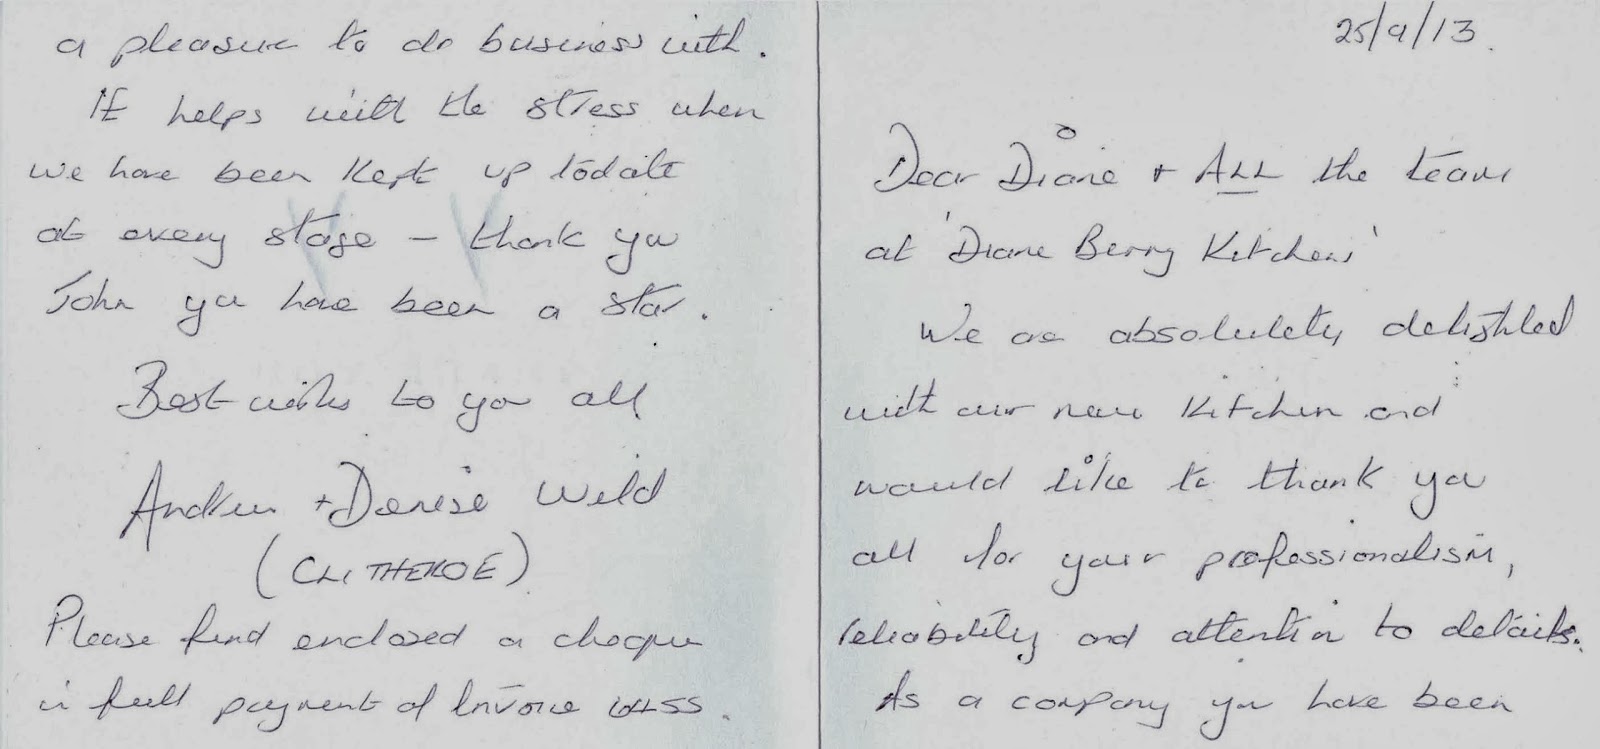 25/9/13.
Dear Diane + ALL the team
at 'Diane Berry Kitchens'
We are absolutely delighted
with our new Kitchen and
would like to thank you
all for your professionalism,
reliability and attention to details.
As a company you have been
a pleasure to do business with.
It helps with the stress when
we have been kept up todate
at every stage - thank you
John you have been a star.
Best wishes to you all
Andrew + Denise Weld
(CLITHEROE)
Please find enclosed a cheque
in full payment of Invoice